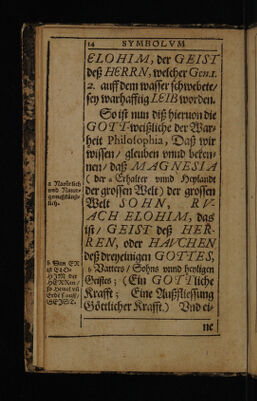 14 SYMBOLVM
ELOHIM, der GEIST
deß HERRN, welcher Gen. 1.
2. auff dem wasser schwebete/
sey warhafftig LEIB worden.
So ist nun diß hiervon die
GOTT-weißliche der War-
heit Philosophia, Daß wir
wissen/ gleuben vnnd beken-
nen/ daß MAGNESIA
(der a Erhalter vnnd Heylandt
der grossen Welt) der grossen
Welt SOHN, RV-
ACH ELOHIM, das
ist/ GEIST deß HER-
REN, oder HAVCHEN
deß dreyeinigen GOTTES,
b Vatters/ Sohns vnnd heyligen
Geistes; (Ein GOTTliche
Krafft; Eine Außfliessung
Göttlicher Krafft.) Vnd ei-
ne
a Natürlich
und Natur-
lich.
b Den ER
ist ELO-
HIM der
HERRen/
so Himel vñ
GEIST.